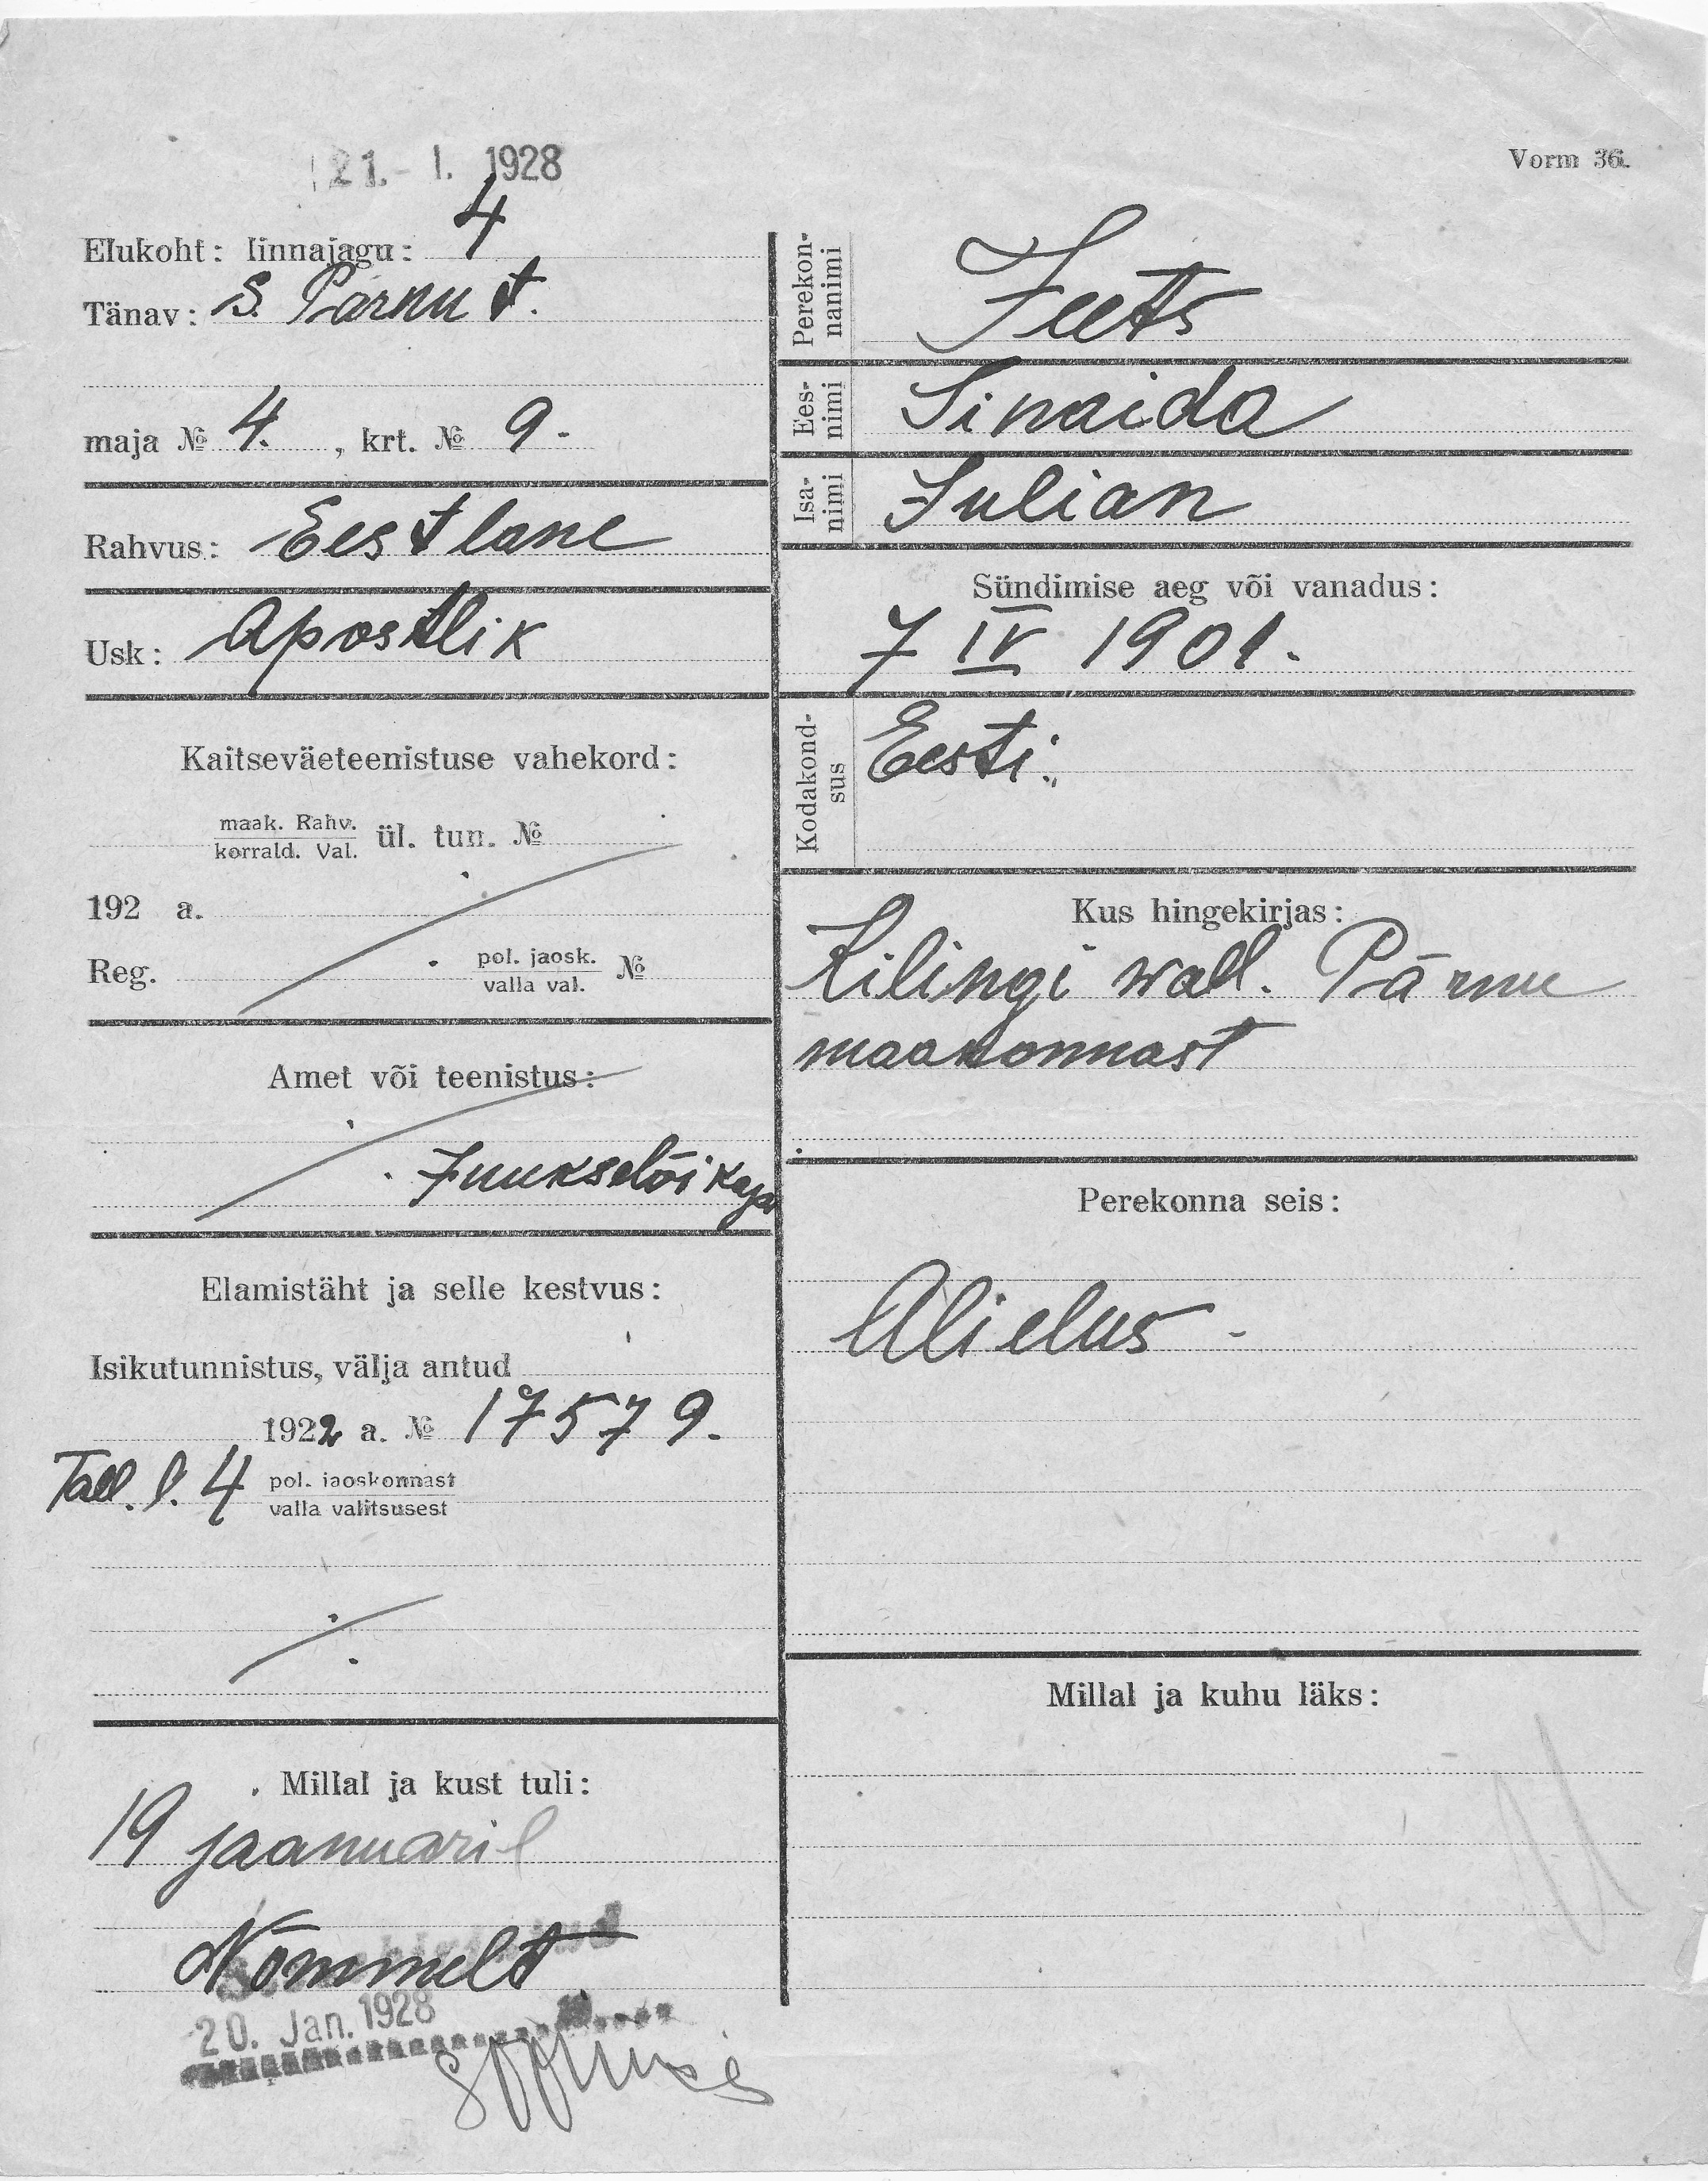 21. I. 1928
Vorm 36.
Elukoht: linnajagu: 4
Tänav: S. Pärnu t.
maja № 4. , krt. № 9.-
Rahvus: Eestlane
Usk: Apostlik
Kaitseväeteenistuse vahekord:
maak. Rahv.
korrald. Val. ül. tun. №
192 a.
Reg. pol. jaosk.
valla val. №
Amet või teenistus:
Juukselõikaja
Elamistäht ja selle kestvus:
Isikutunnistus, välja antud
1922 a. № 17579.
Tall. l. 4 pol. jaoskonnast
valla valitsusest
Millal ja kust tuli:
19 jaanuaril
Nõmmelt
20. Jan. 1928
Perekon-
nanimi
Jeets
Ees-
nimi
Sinaida
Isa-
nimi
Julian
Sündimise aeg või vanadus:
7 IV 1901.
Kodakond-
sus
Eesti.
Kus hingekirjas:
Kilingi wall. Pärnu
maakonnast
Perekonna seis:
Abielus -
Millal ja kuhu läks: